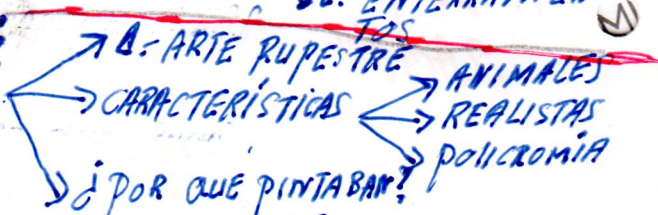 ENTERRAMIEN
TOS
1.- ARTE RUPESTRE
CARACTERÍSTICAS
ANIMALES
REALISTAS
POLICROMÍA
¿POR QUÉ PINTABAN?